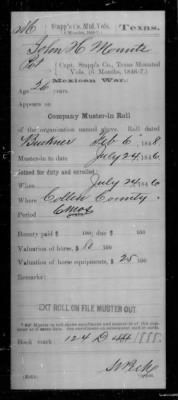 Stapp's Co. Mtd. Vols. Texas.
(6 Months, 1846-7.)
John H.
Capt. Stapp's Co., Texas Mounted
Vols. (6 Months, 1846-7.)
Mexican War.
Age 26 years.
Appears on
Company Muster-in Roll
of the organization named above. Roll dated
Buckner
Muster-in to date July 24, 1846.
Joined for duty and enrolled:
When July 24, 1846
Where Collin County
Period 6 mos
Bounty paid $ 100; due $ 100
Valuation of horse, $ 100
Valuation of horse equipments, $ 25 100
Remarks:
EXT ROLL ON FILE MUSTER OUT
Book mark: 124 D
Copyist.